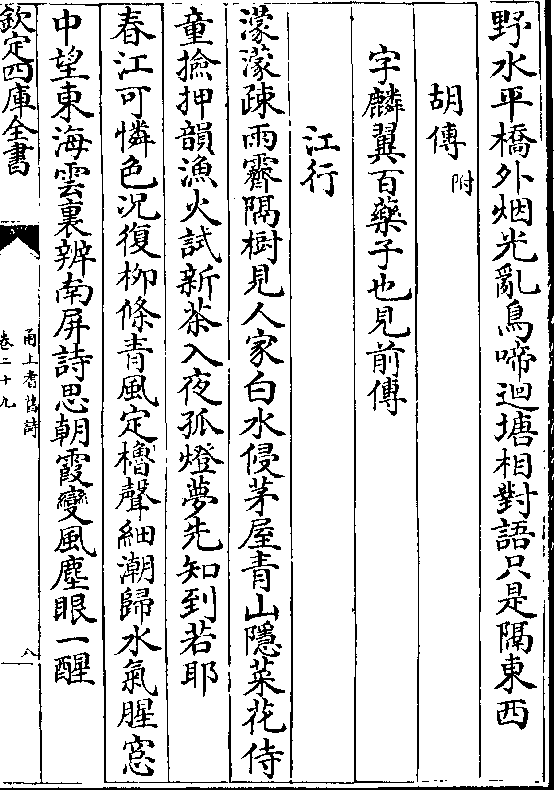 野水平橋外烟光亂鳥啼迴塘相對語只是隔東西
胡傳附
字麟翼百藥子也見前傳
江行
濛濛疎雨霽隔樹見人家白水侵茅屋青山隱菜花侍
童撿押韻漁火試新茶入夜孤燈夢先知到若耶
春江可憐色况復柳條青風定櫓聲細潮歸水氣腥窓
中望東海雲裏辨南屏詩思朝霞變風塵眼一醒
欽定四庫全書
甬上耆舊詩
卷二十九
八